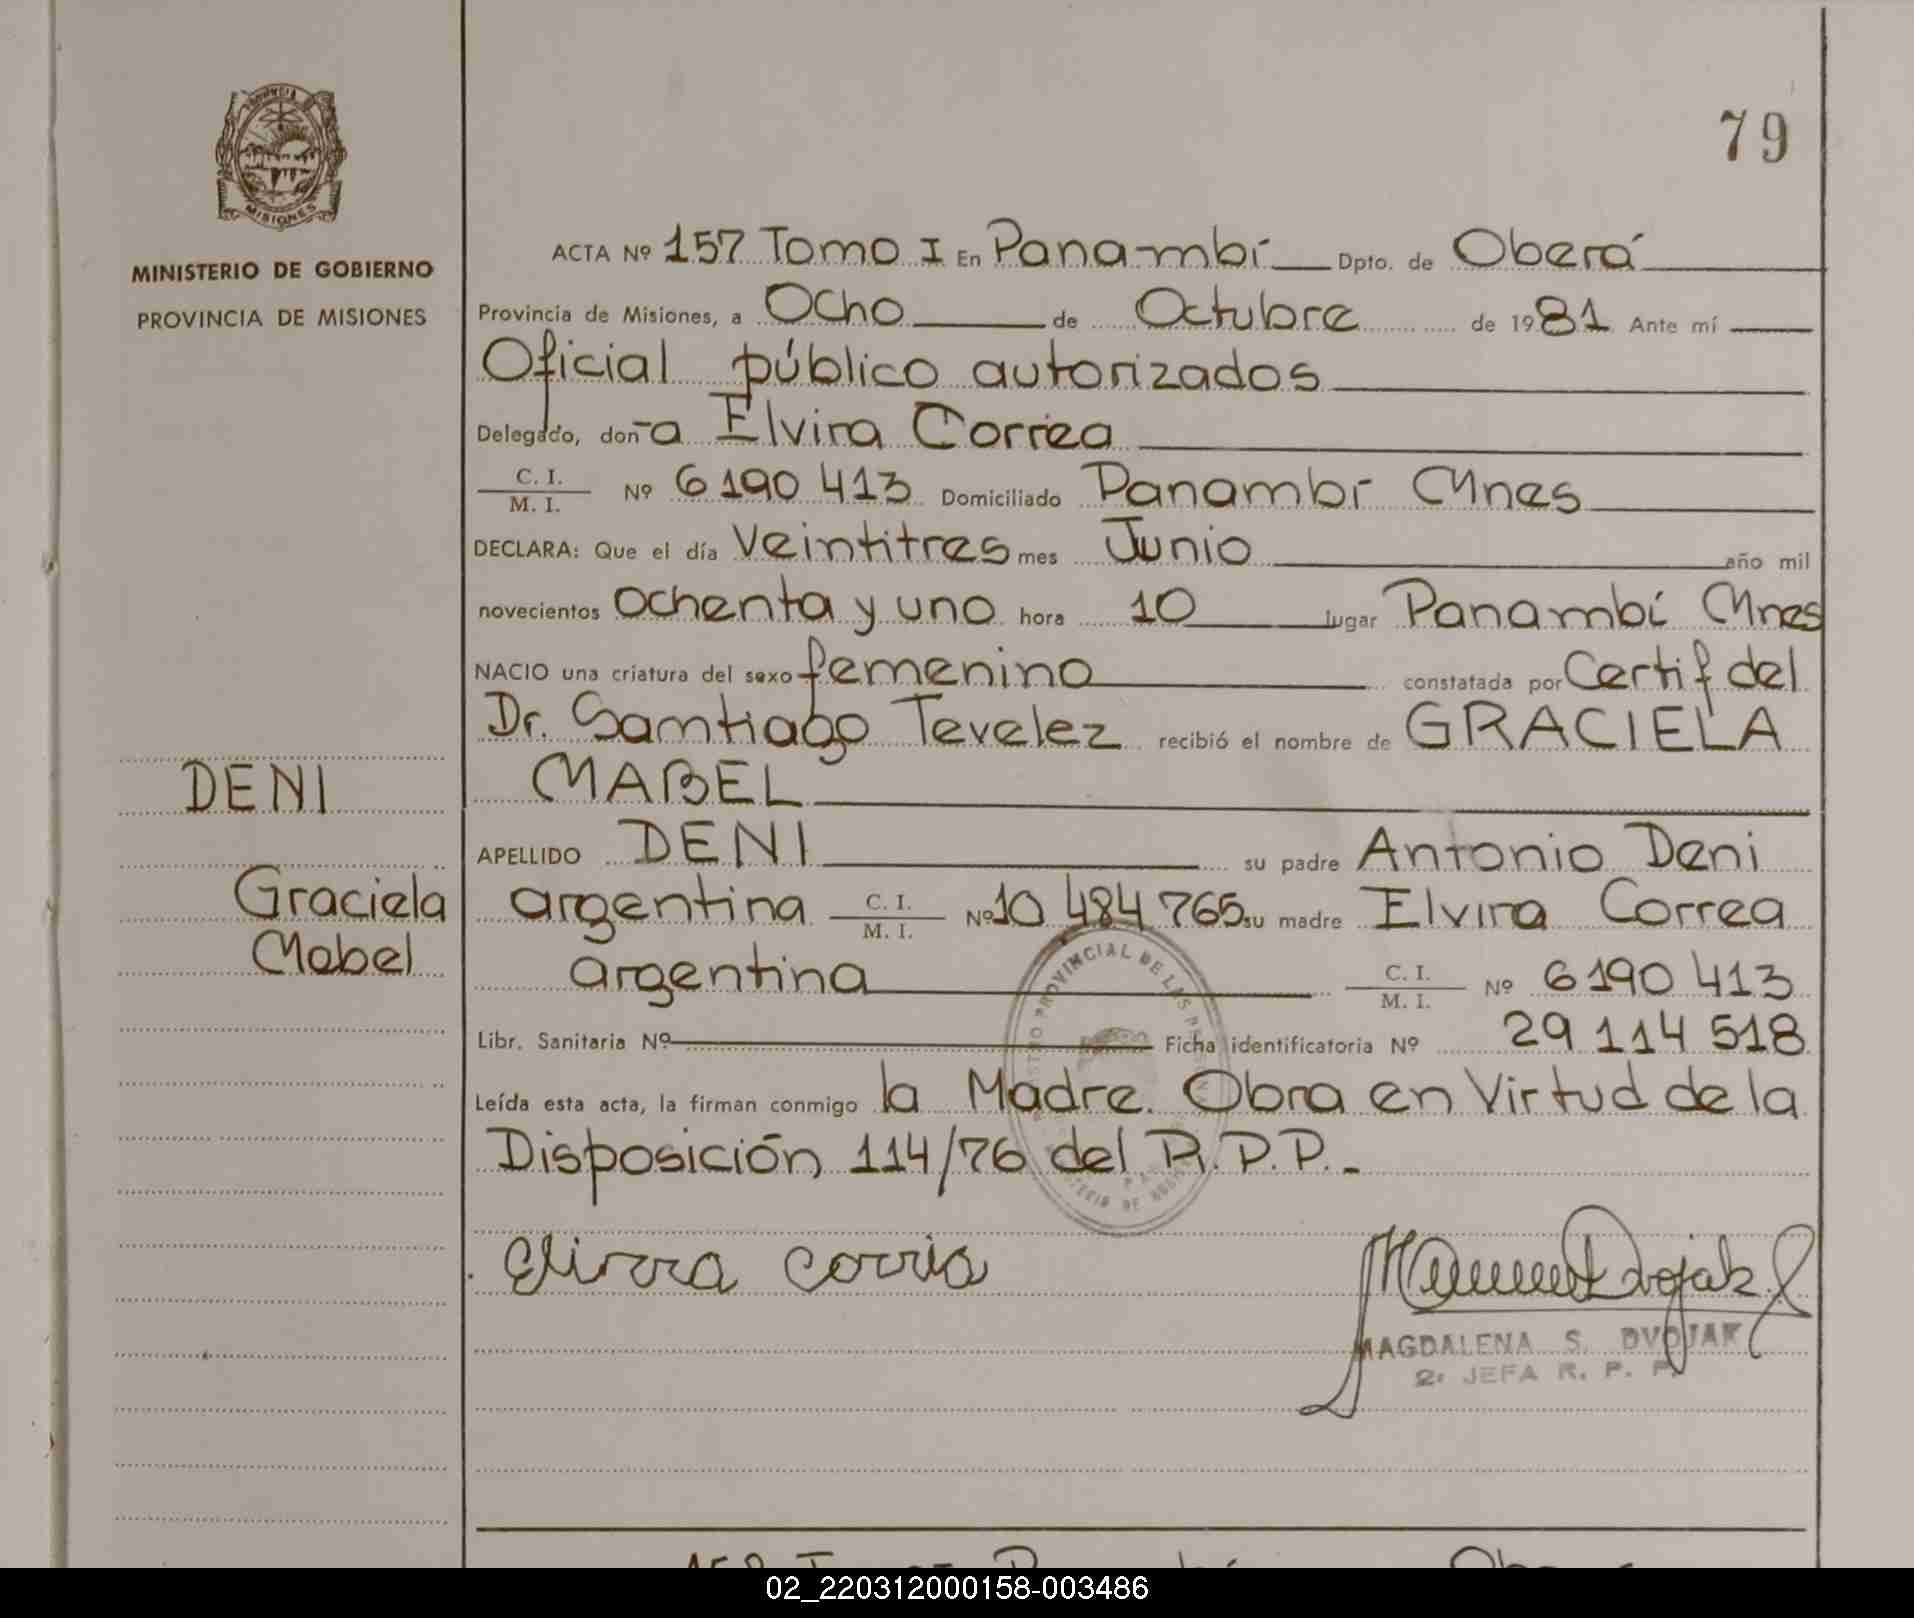 PROVINCIA DE
MISIONES
MINISTERIO DE GOBIERNO
PROVINCIA DE MISIONES
79
ACTA Nº 157 Tomo I En Panambí Dpto. de Oberá
Provincia de Misiones, a Ocho de Octubre de 1981 Ante mí
Oficial público autorizados
Delegado, don-a Elvira Correa
C. I.
M. I. Nº 6190 413 Domiciliado Panambí Mnes
DECLARA: Que el día Veintitres mes Junio año mil
novecientos ochenta y uno hora 10 lugar Panambí Mnes
NACIO una criatura del sexo femenino constatada por Certif del
Dr. Samtiago Tevelez recibió el nombre de GRACIELA
MABEL
DENI
APELLIDO DENI su padre Antonio Deni
Graciela
argentina C. I.
M. I. Nº 10 484 765 su madre Elvira Correa
Mabel
argentina C. I.
M. I. Nº 6190 413
Libr. Sanitaria Nº Ficha identificatoria Nº 29 114 518
Leída esta acta, la firman conmigo la Madre. Obra en Virtud de la
Disposición 114/76 del R.P.P.-
PROVINCIAL DE LAS
Elvira Corria
Dvojak
MAGDALENA S. DVOJAK
2ª JEFA R. P. P.
02_220312000158-003486